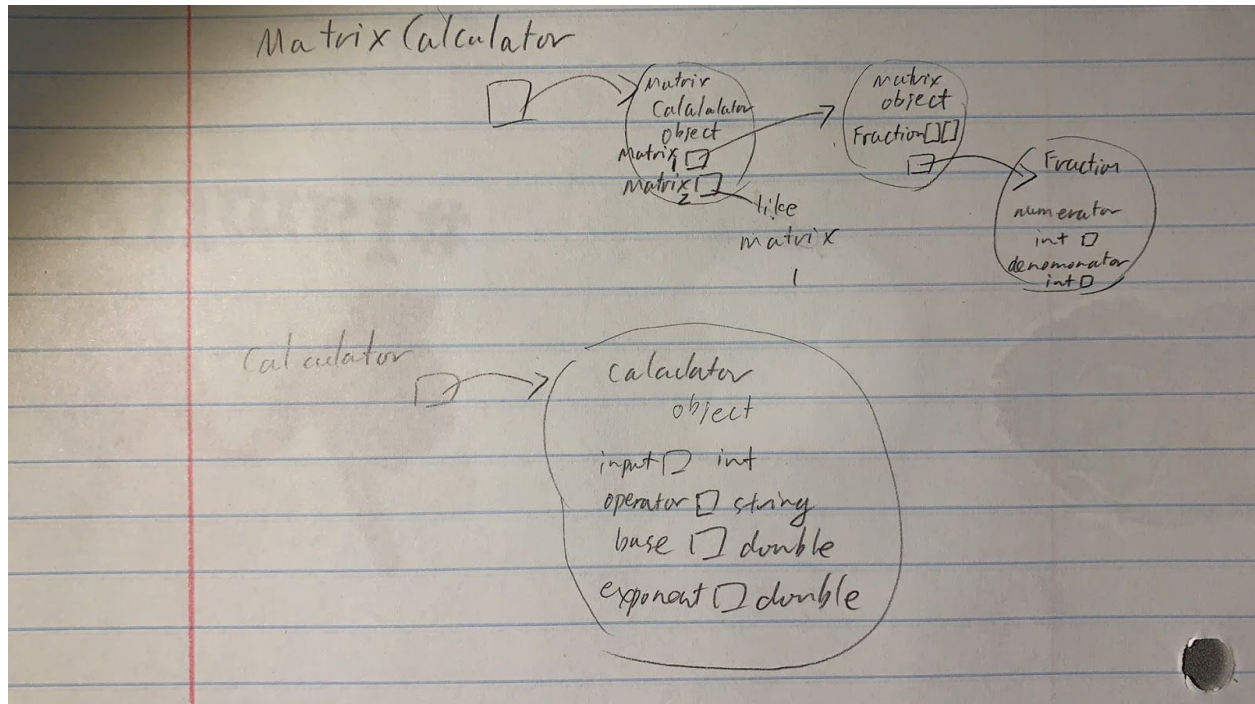 Matrix Calculator
Matrix
Calalalator
object
Matrix
1
Matrix
2
like
matrix
1
matrix
object
Fraction[][]
Fraction
numerator
int
denomonator
int
Calculator
Calculator
object
input int
operator string
base double
exponent double